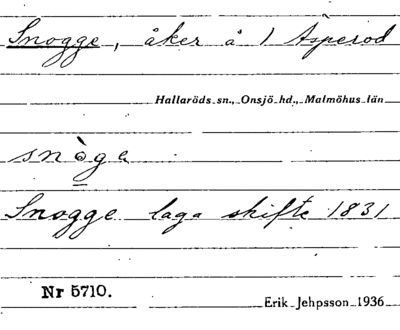 Snogge, åker å 1 Äsperöd
Hallaröds sn., Onsjö hd., Malmöhus län
snòge
Snogge laga skifte 1831
Nr 5710.
Erik Jehpsson 1936